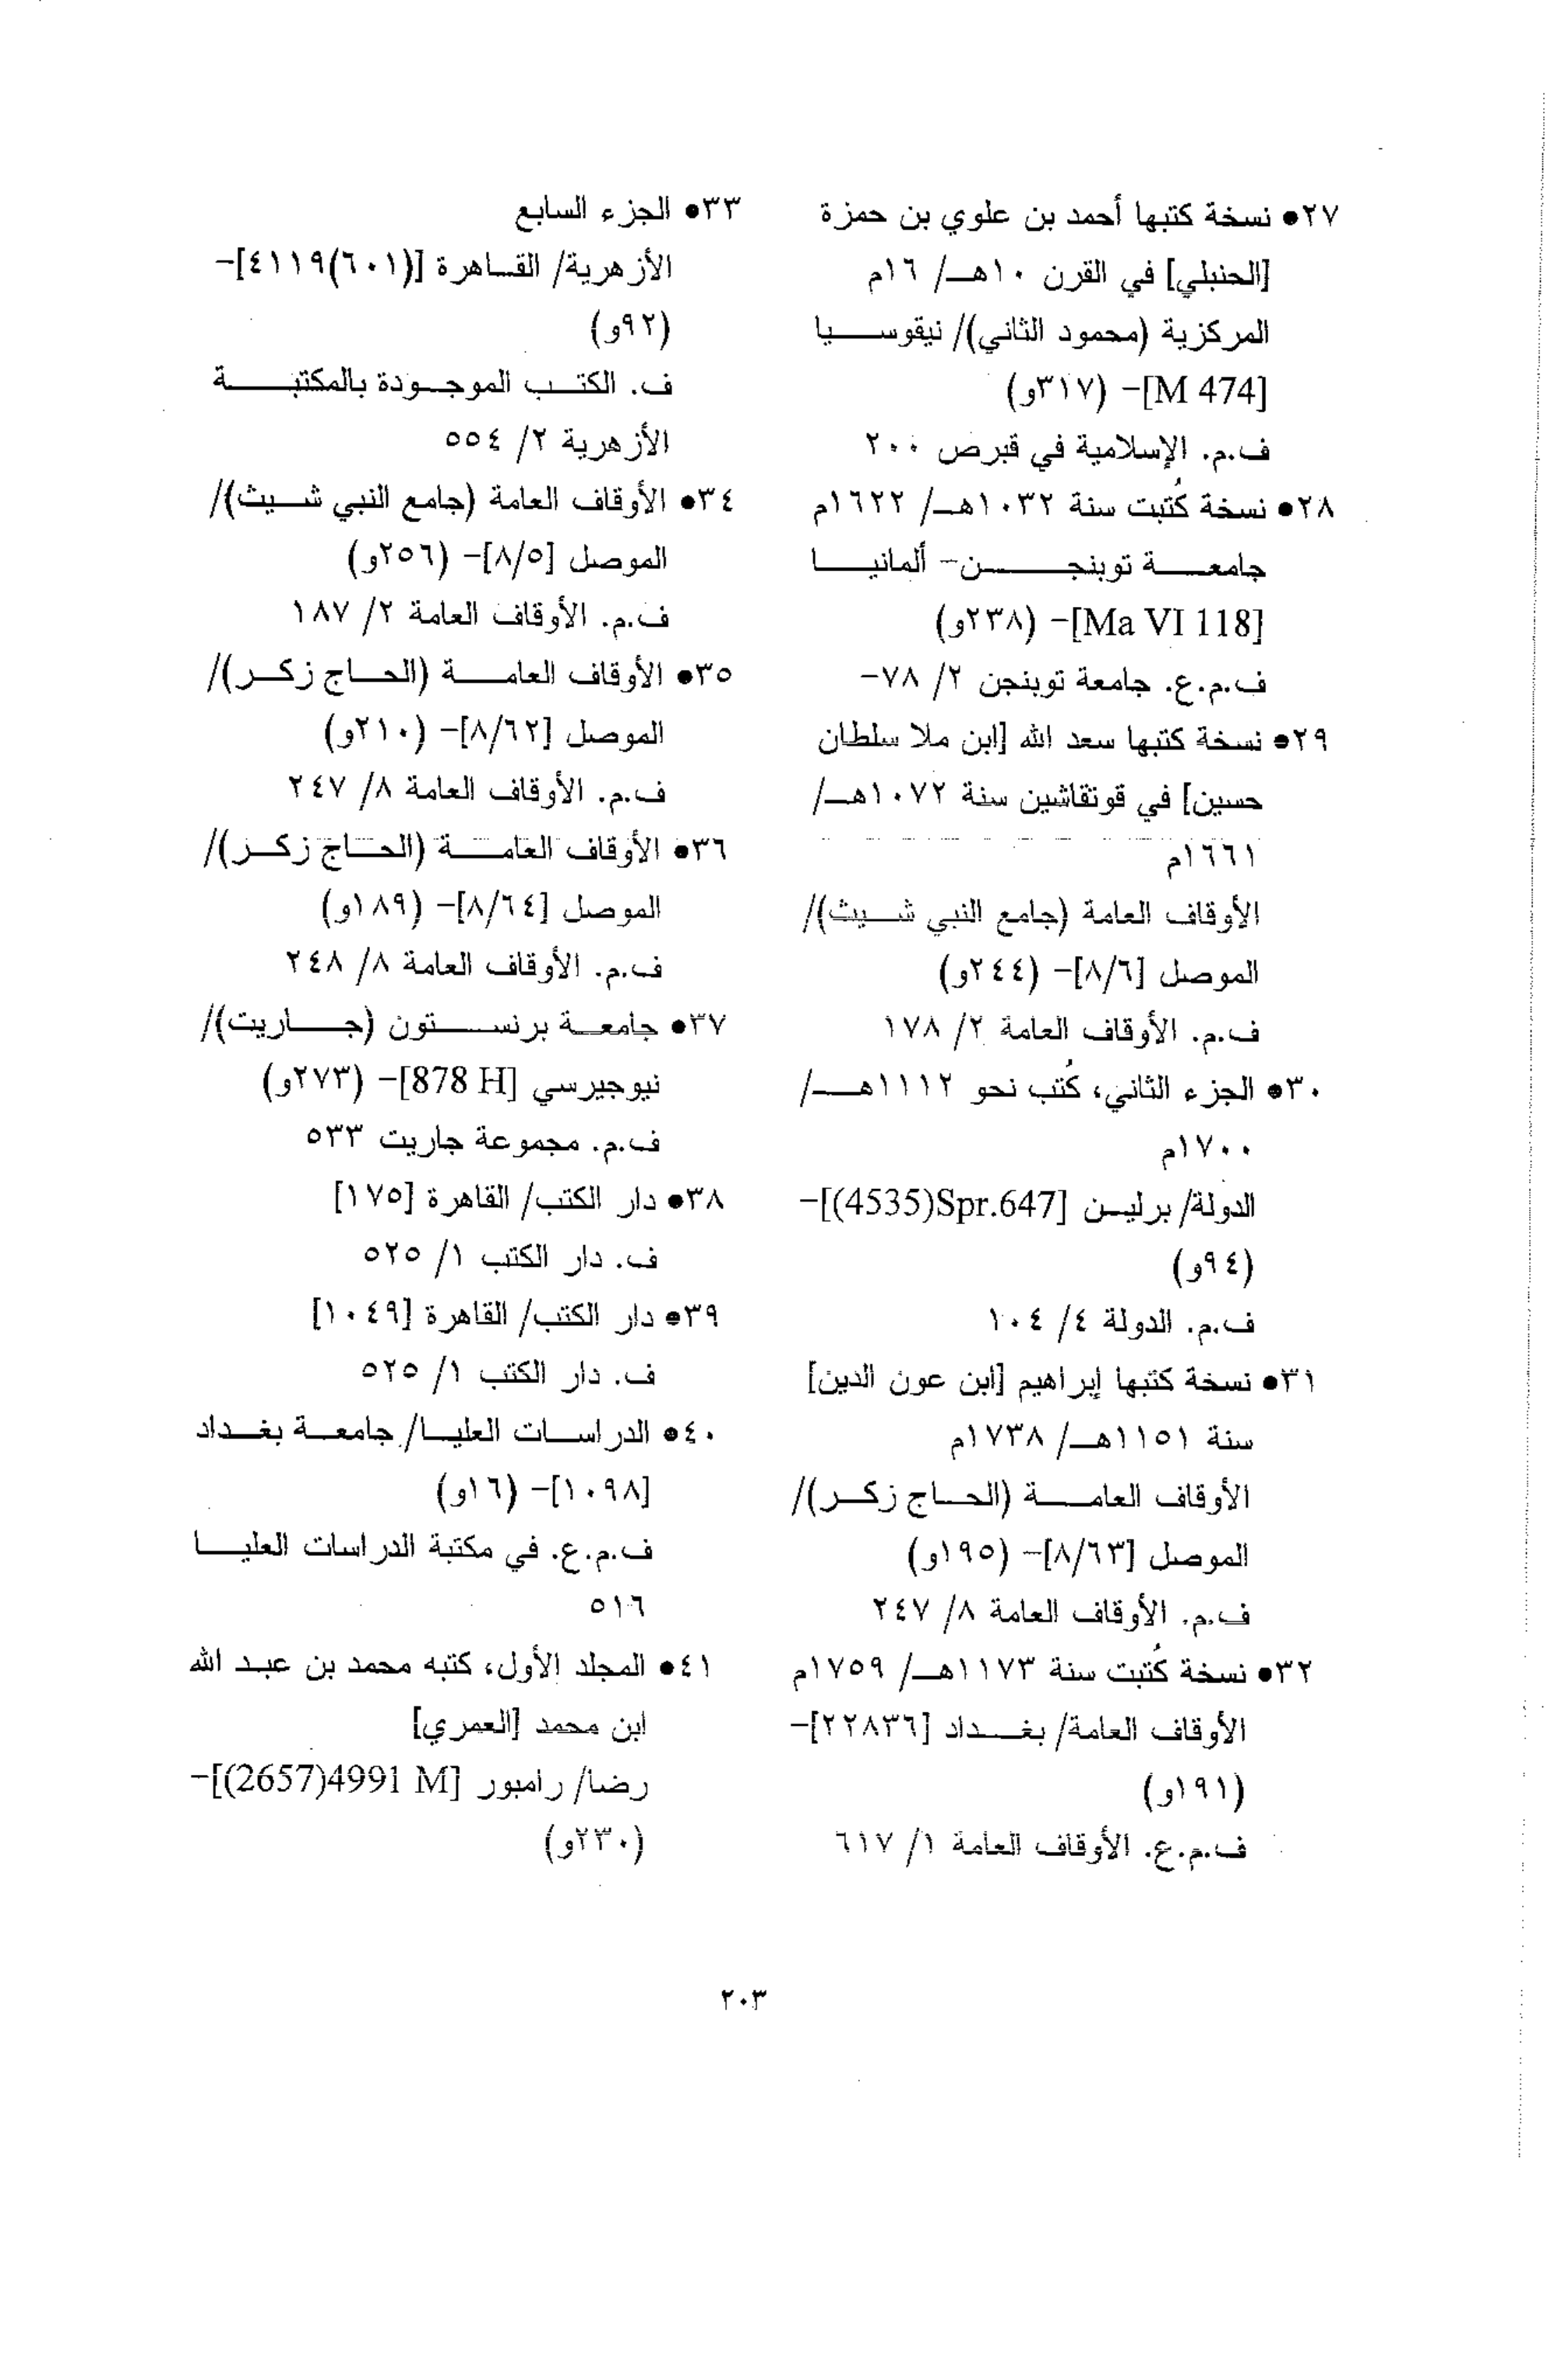 ٢٧● نسخة كتبها أحمد بن علوي بن حمزة
[الحنبلي] في القرن ١٠هـ/ ١٦م
المركزية (محمود الثاني)/ نيقوسيا
[M 474]- (٣١٧و)
ف.م. الإسلامية في قبرص ٢٠٠
٢٨● نسخة كُتبت سنة ١٠٣٢هـ/ ١٦٢٢م
جامعة توبنجن- ألمانيا
[Ma VI 118]- (٢٣٨و)
ف.م.ع. جامعة توبنجن ٢/ ٧٨-
٢٩● نسخة كتبها سعد الله [ابن ملا سلطان
حسين] في قونقاشين سنة ١٠٧٢هـ/
١٦٦١م
الأوقاف العامة (جامع النبي شيث)/
الموصل [٨/٦]- (٢٤٤و)
ف.م. الأوقاف العامة ٢/ ١٧٨
٣٠● الجزء الثاني، كُتب نحو ١١١٢هـ/
١٧٠٠م
الدولة/ برلين [Spr.647(4535)]-
(٩٤و)
ف.م. الدولة ٤/ ١٠٤
٣١● نسخة كتبها إبراهيم [ابن عون الدين]
سنة ١١٥١هـ/ ١٧٣٨م
الأوقاف العامة (الحاج زكر)/
الموصل [٨/٦٣]- (١٩٥و)
ف.م. الأوقاف العامة ٨/ ٢٤٧
٣٢● نسخة كُتبت سنة ١١٧٣هـ/ ١٧٥٩م
الأوقاف العامة/ بغداد [٢٢٨٣٦]-
(١٩١و)
ف.م.ع. الأوقاف العامة ١/ ٦١٧
٣٣● الجزء السابع
الأزهرية/ القاهرة [(٦٠١)٤١١٩]-
(٩٢و)
ف. الكتب الموجودة بالمكتبة
الأزهرية ٢/ ٥٥٤
٣٤● الأوقاف العامة (جامع النبي شيث)/
الموصل [٨/٥]- (٢٥٦و)
ف.م. الأوقاف العامة ٢/ ١٨٧
٣٥● الأوقاف العامة (الحاج زكر)/
الموصل [٨/٦٢]- (٢١٠و)
ف.م. الأوقاف العامة ٨/ ٢٤٧
٣٦● الأوقاف العامة (الحاج زكر)/
الموصل [٨/٦٤]- (١٨٩و)
ف.م. الأوقاف العامة ٨/ ٢٤٨
٣٧● جامعة برنستون (جاريت)/
نيوجيرسي [878 H]- (٢٧٣و)
ف.م. مجموعة جاريت ٥٣٣
٣٨● دار الكتب/ القاهرة [١٧٥]
ف. دار الكتب ١/ ٥٢٥
٣٩● دار الكتب/ القاهرة [١٠٤٩]
ف. دار الكتب ١/ ٥٢٥
٤٠● الدراسات العليا/ جامعة بغداد
[١٠٩٨]- (١٦و)
ف.م.ع. في مكتبة الدراسات العليا
٥١٦
٤١● المجلد الأول، كتبه محمد بن عبد الله
ابن محمد [العمري]
رضا/ رامبور [4991 M(2657)]-
(٢٣٠و)
٢٠٣